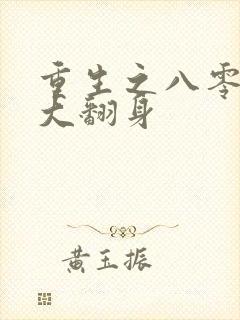 重生之八零
大翻身
黄玉振